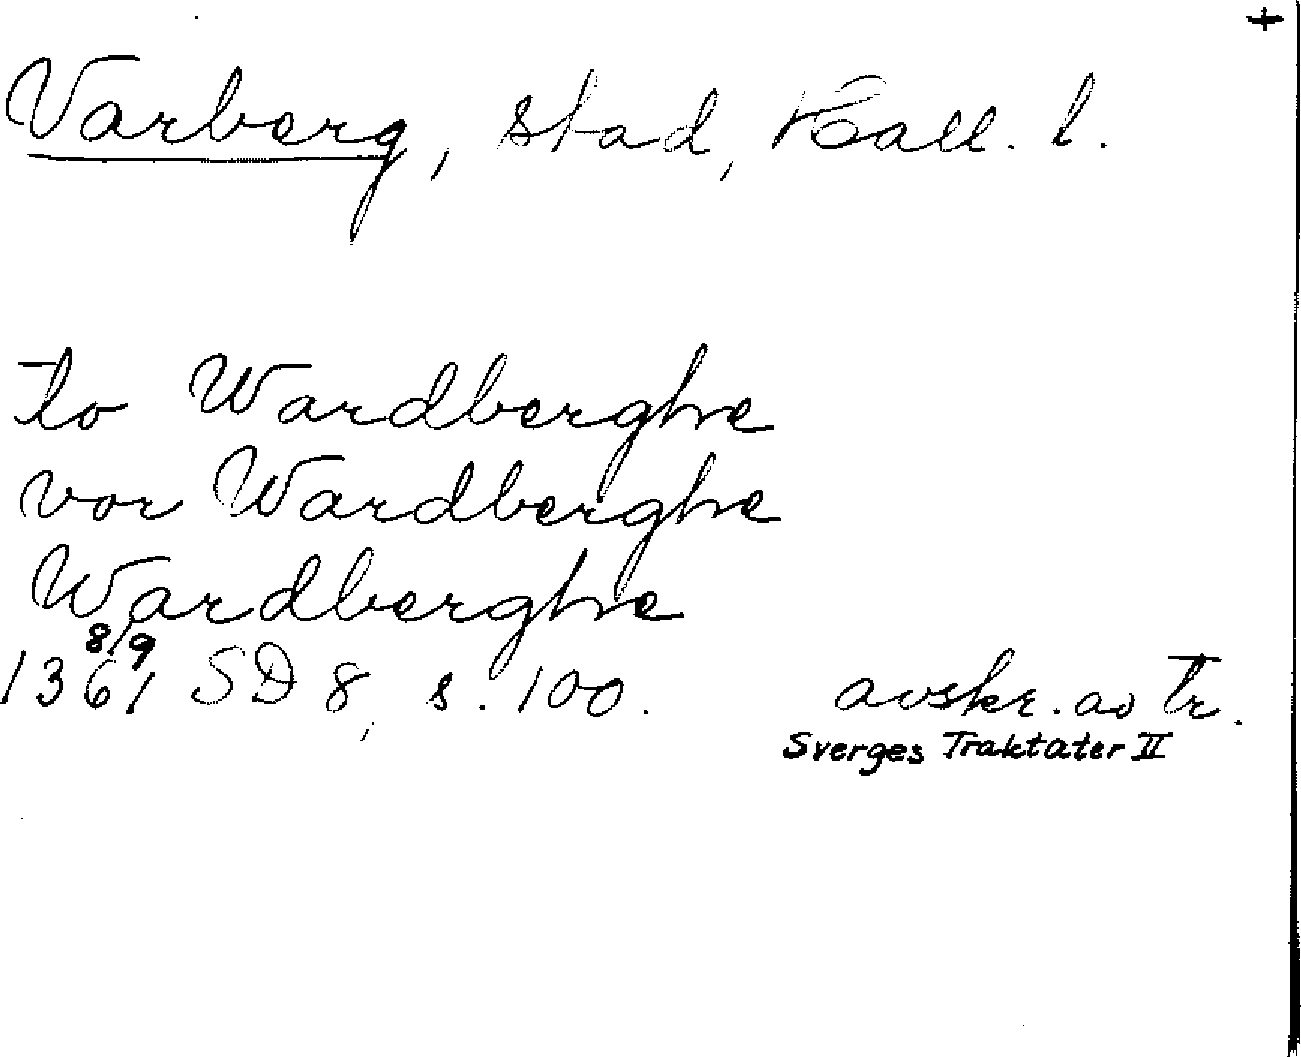 +
Varberg, stad, Hall. l.
to Wardberghe
vor Wardberghe
Wardberghe
8/9
1361 SD 8, s. 100. avskr. av Tr.
Sverges Traktater II